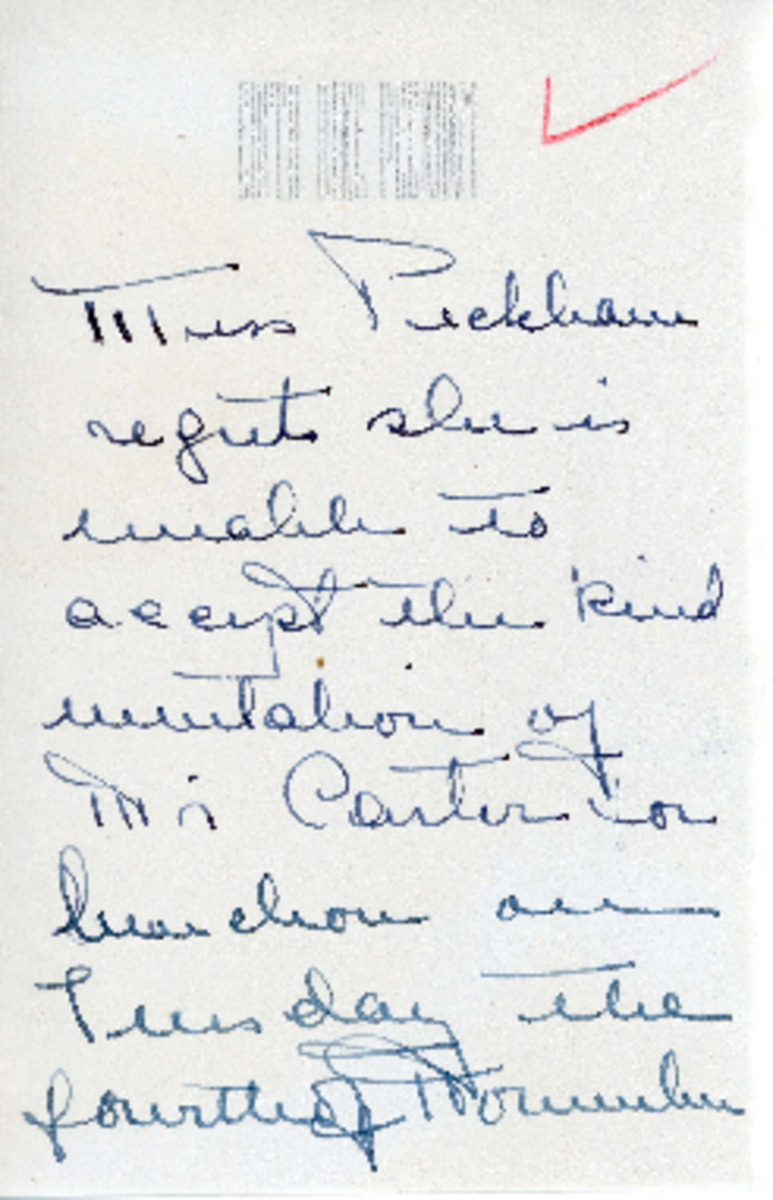 Miss Peckham
regrets she is
unable to
accept the kind
invitation of
Mr Carter for
luncheon on
Tuesday the
fourth of November